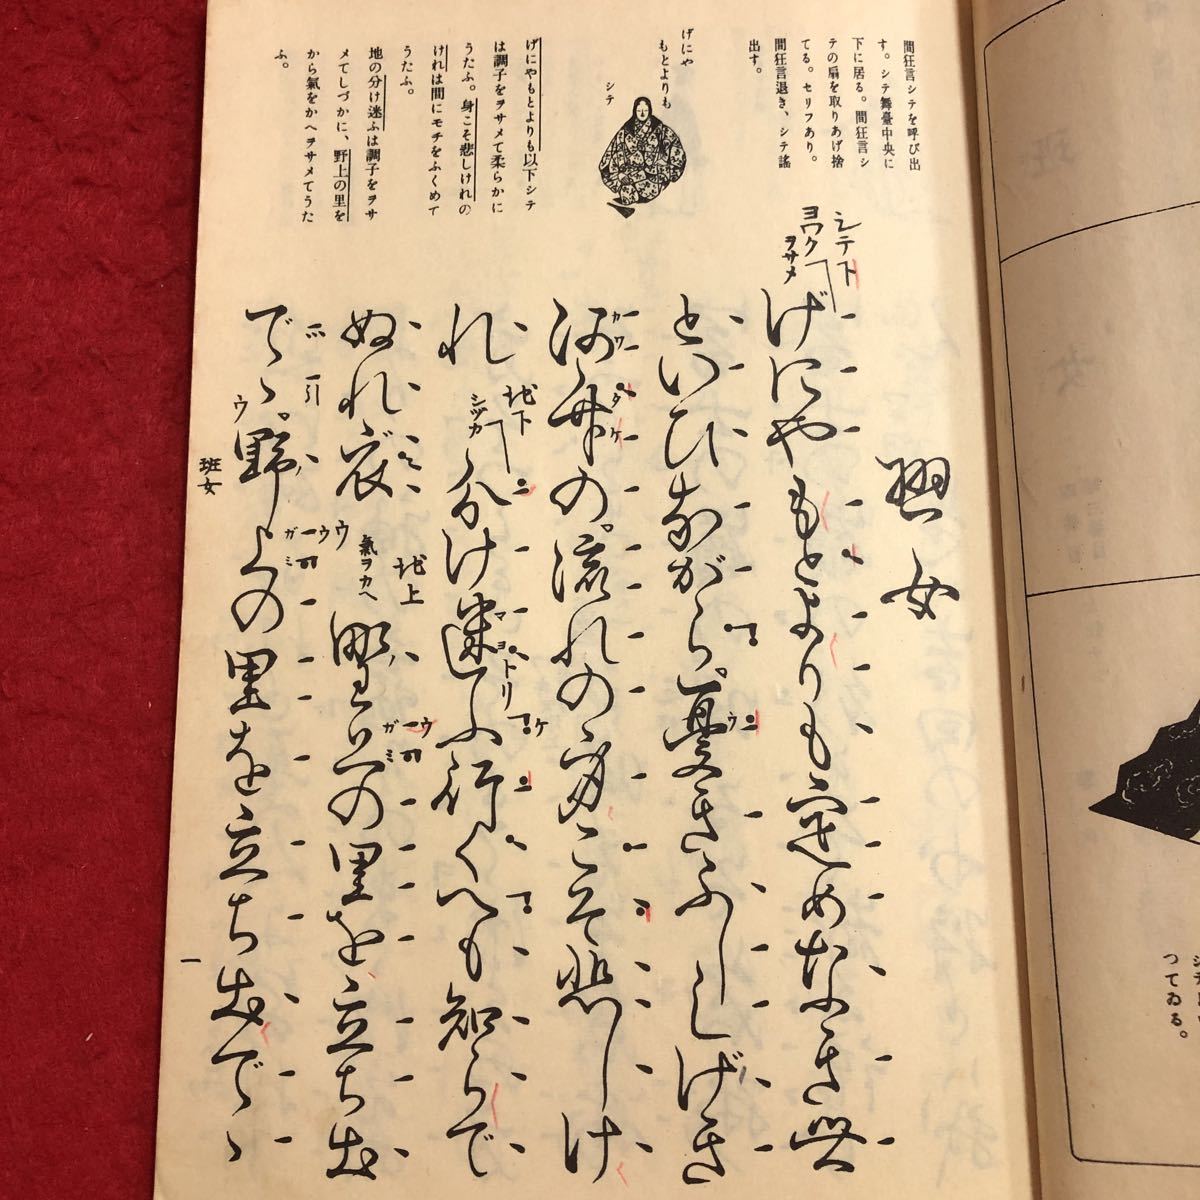 間狂言シテを呼び出
す。シテ舞臺中央に
下に居る。間狂言シ
テの扇を取りあげ捨
てる。セリフあり。
間狂言退き、シテ謠
出す。
げにや
もとよりも
シテ
げにやもとよりも以下シテ
は調子をヲサメて柔らかに
うたふ。身こそ悲しけれの
けれは間にモチをふくめて
うたふ。
地の分け迷ふは調子をヲサ
メてしづかに、野上の里を
から氣をかへヲサメてうた
ふ。
班女
シテ下
ヨワク
ヲサメ
げにやもとよりも定めなき世
といひながら。憂きふししげき
河竹の。流れの身こそ悲しけ
れ
地下
シヅカ
分け迷ふ行くへも知らで
ぬれ衣
地上
氣ヲカヘ
野上の里を立ち出
でゝ。野上の里を立ち出でゝ
班女
一
つてゐる。